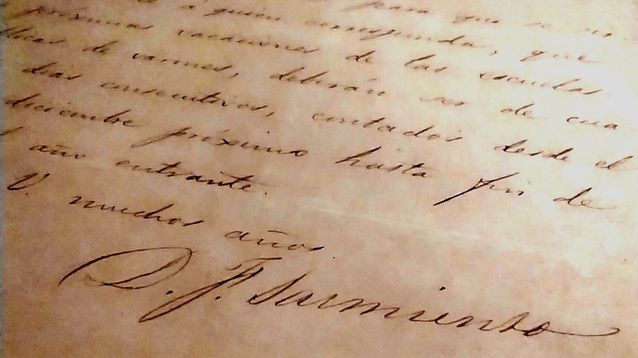 a quien corresponda, que
próximas vacaciones de las escuelas
de varones, deberán ser de cua
dias consecutivos, contados desde el
diciembre próximo hasta fin de
año entrante.
V. muchos años.
D. F. Sarmiento